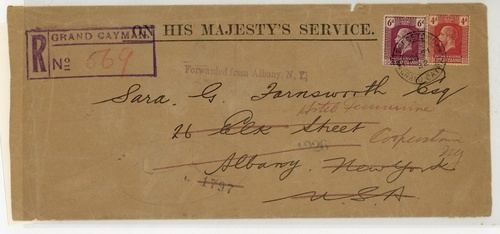 ON HIS MAJESTY'S SERVICE.
R GRAND CAYMAN.
No 569
6d 6d
4d 4d
Forwarded from Albany N.Y.
Sara. G. Farnsworth Esq
Hotel
26 Elk Street
Cooperstown
NY
Albany. New York
U.S.A
1797